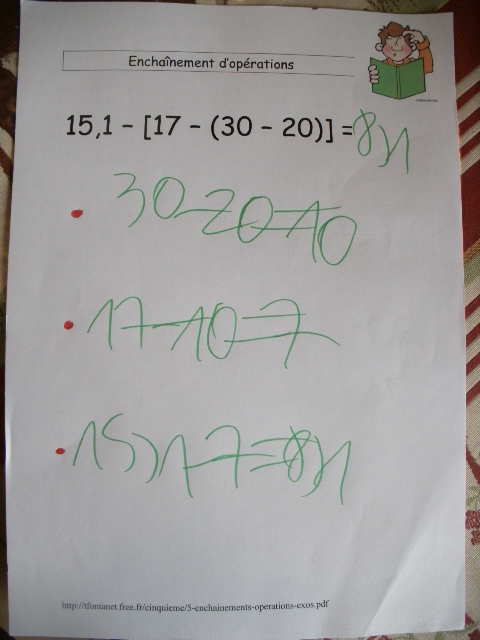 Enchaînement d'opérations
15,1 – [17 – (30 – 20)] = 8,1
30-20=10
17-10=7
15,1-7=8,1
http://tfontanet.free.fr/cinquieme/5-enchainements-operations-exos.pdf